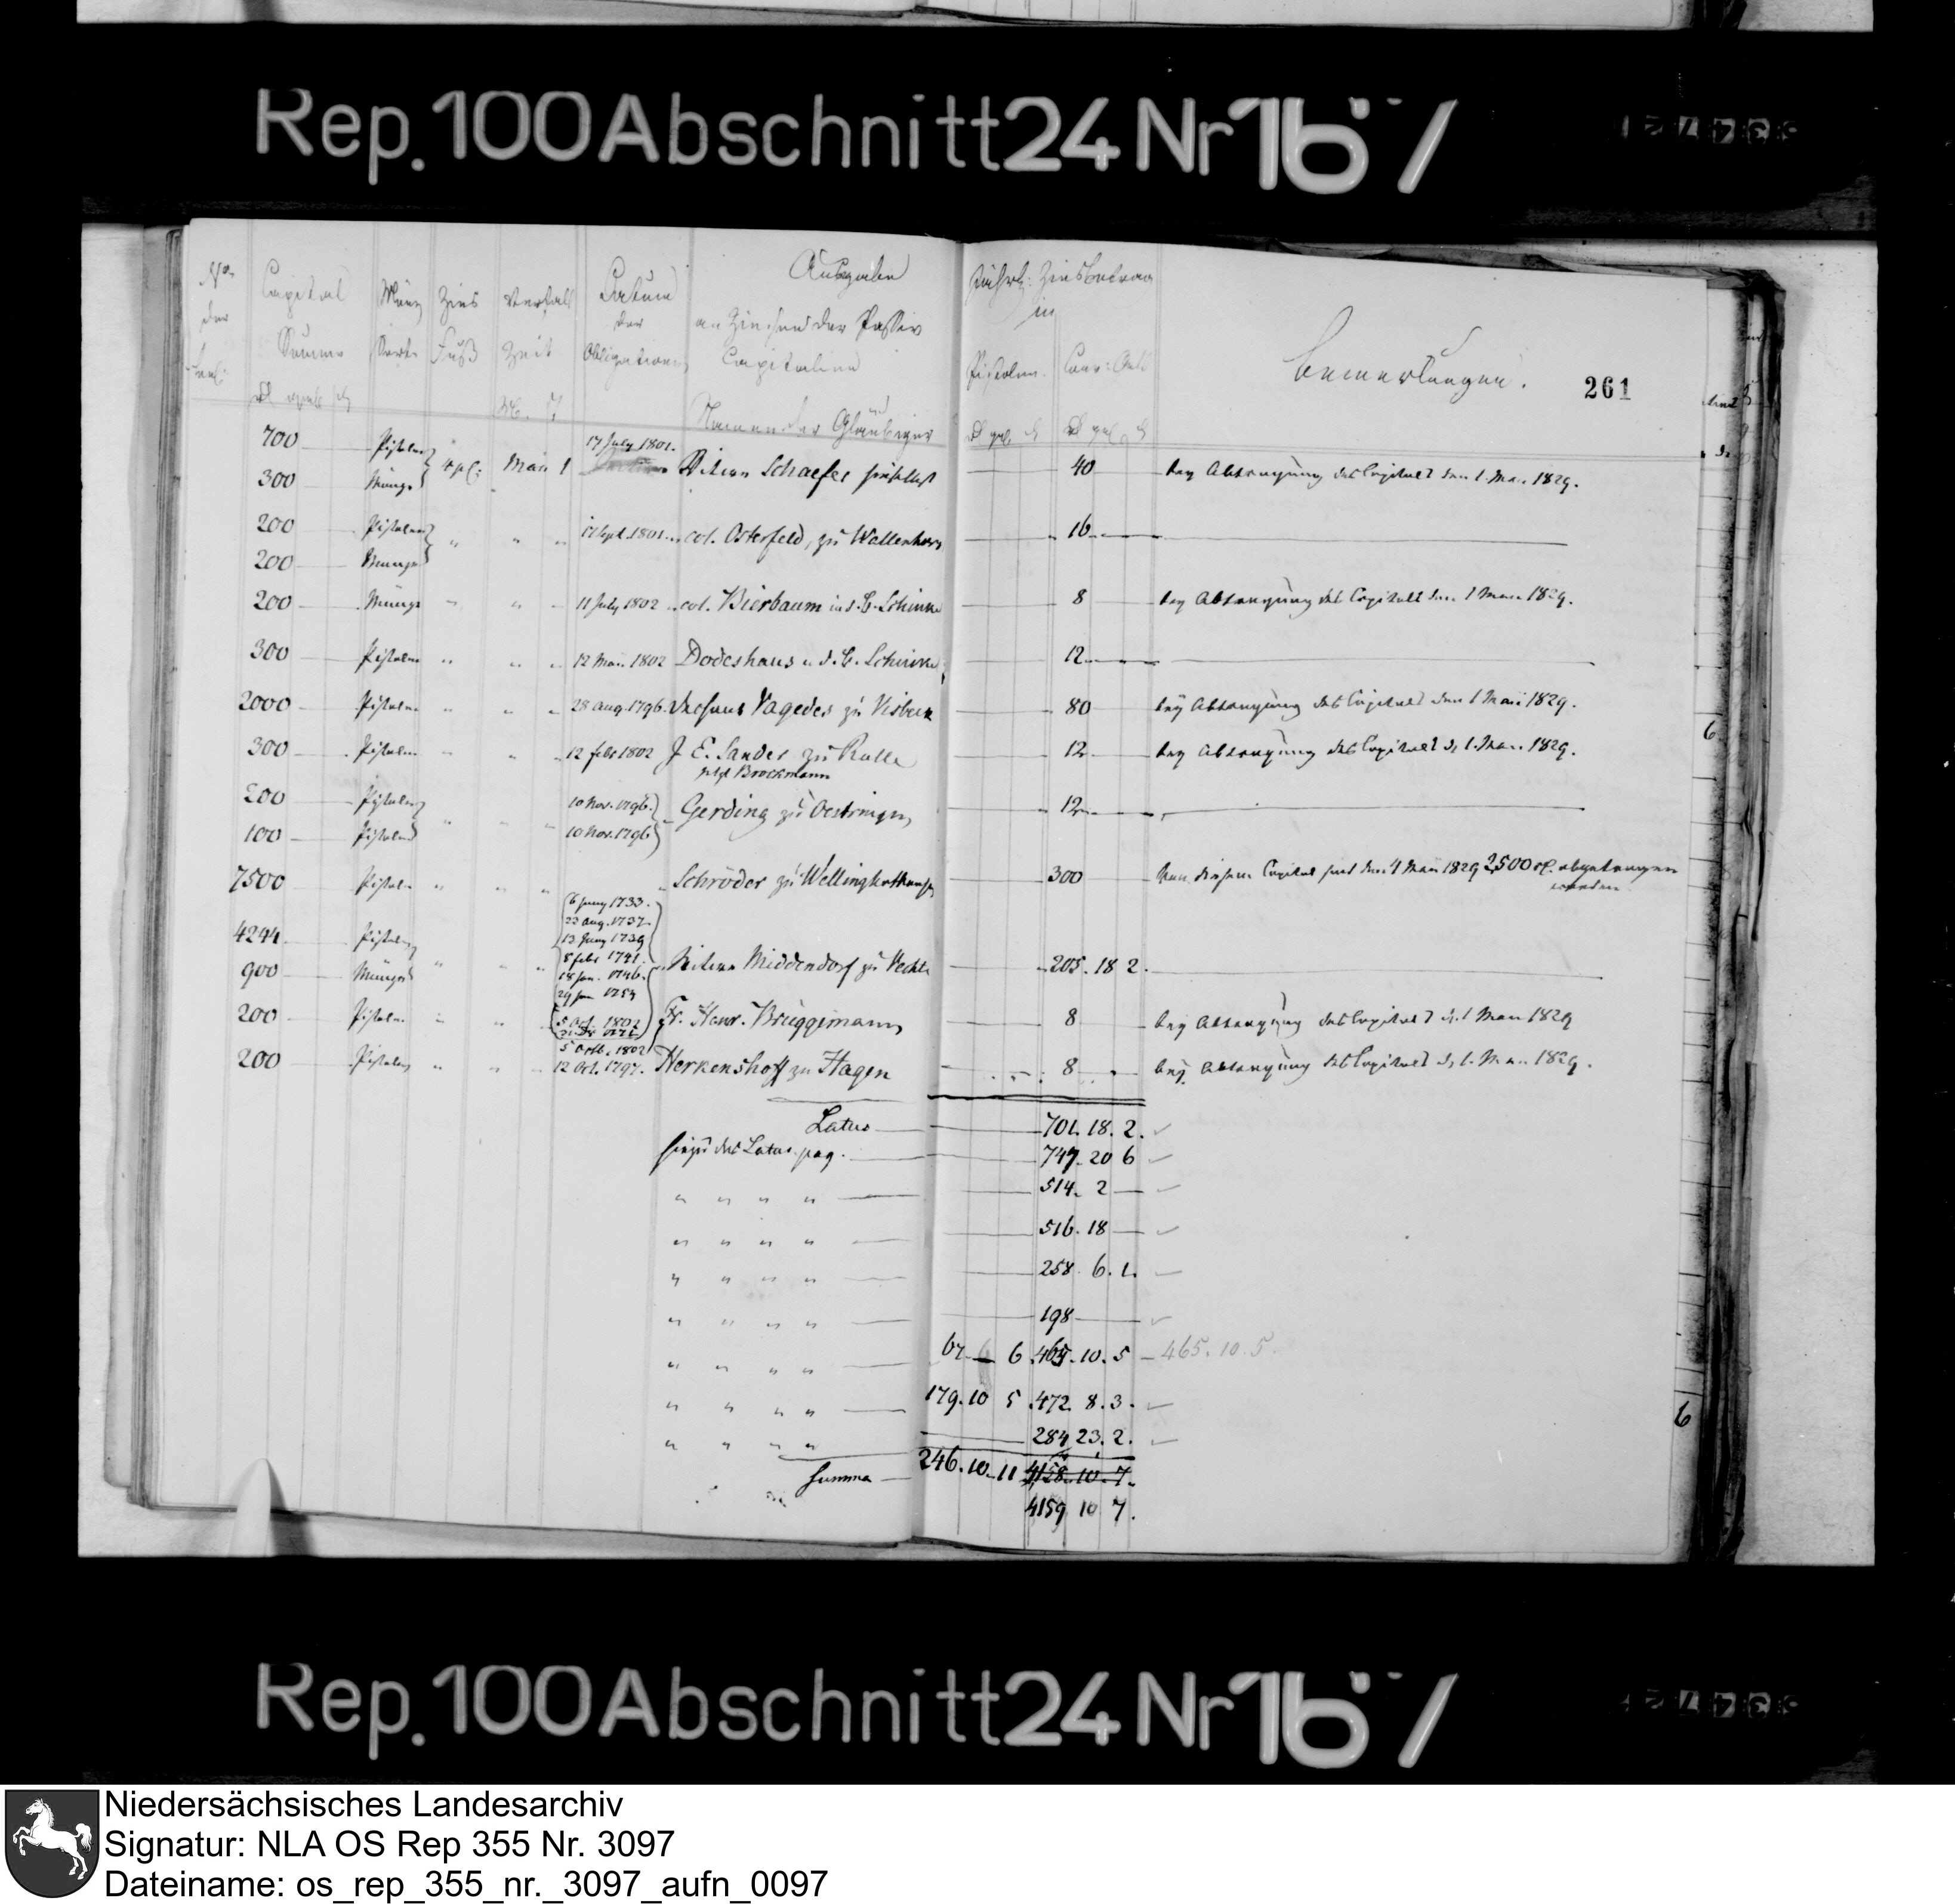 Rep. 100 Abschnitt 24 Nr 167
No. der
Capital Summe
Münz Sorte
Zins Fuß
Verfall Zeit
Datum der Obligationen
Ausgaben
an Zinsen der Passiv
Capitalien
Namen der Gläubiger
Jährl: Zinsbetrag
in
Pistolen Conv:
Bemerkungen.
261
700 Pistolen 4 pC: Maii 1 17 July 1801. Wittwe Schaefer hieselbst 40 bey Abtragung des Capitals den 1. Maii 1829.
300 Münze
200 Pistolen " " " Sept. 1801. col. Osterfeld, zu Wallenhorst 16
200 Münze
200 Münze " " " 11 July 1802 col. Bierbaum in d. B. Schinkel 8 bey Abtragung des Capitals den 1 Maii 1829.
300 Pistolen " " " 12 Maii 1802 Dodeshaus i. d. B. Schinkel 12
2000 Pistolen " " " 28 Aug. 1796. Vagedes zu Visbeck 80 bey Abtragung des Capitals den 1 Maii 1829.
300 Pistolen " " " 12 febr 1802 J. E. Sander zu Rulle 12 bey Abtragung des Capitals d. 1. Maii 1829.
jetzt Brockmann
200 Pistolen 10 Nov. 1796. Gerding zu Oestringen 12
100 Pistolen " " " 10 Nov. 1796
7500 Pistol. " " " Schröder zu Wellingholthausen 300 Von diesem Capital sind den 1 Maii 1829 2500 rt. abgetragen
worden.
6 Juny 1733.
23 Aug. 1737
13 Juny 1739
4244 Pistolen 8 febr 1741.
900 Münze " " " 18 Jan. 1746. Wittwe Middendorf zu Vechta 205. 18 2.
29 Jan 1754
200 Pistolen " " " 5 Oct. 1802 Fr. Henr. Brüggemann 8 bey Abtragung des Capitals d. 1 Maii 1829
5 Octb. 1802
200 Pistolen " " " 12 Oct. 1797. Herkenshoff zu Hagen 8 bey Abtragung des Capitals d. 1. Maii 1829.
Latus 701. 18. 2.
hiezu das Latus pag. 747. 20 6
" " " " 514. 2
" " " " 516. 18
" " " " 258. 6. 1.
" " " " 198
" " " " 67 6 465. 10. 5 465. 10. 5.
" " " " 179. 10 5 472. 8. 3.
" " " " 284 23. 2.
Summa 246. 10. 11 4158. 10. 7.
4159 10 7.
6
6
Rep. 100 Abschnitt 24 Nr 167
Niedersächsisches Landesarchiv
Signatur: NLA OS Rep 355 Nr. 3097
Dateiname: os_rep_355_nr._3097_aufn_0097